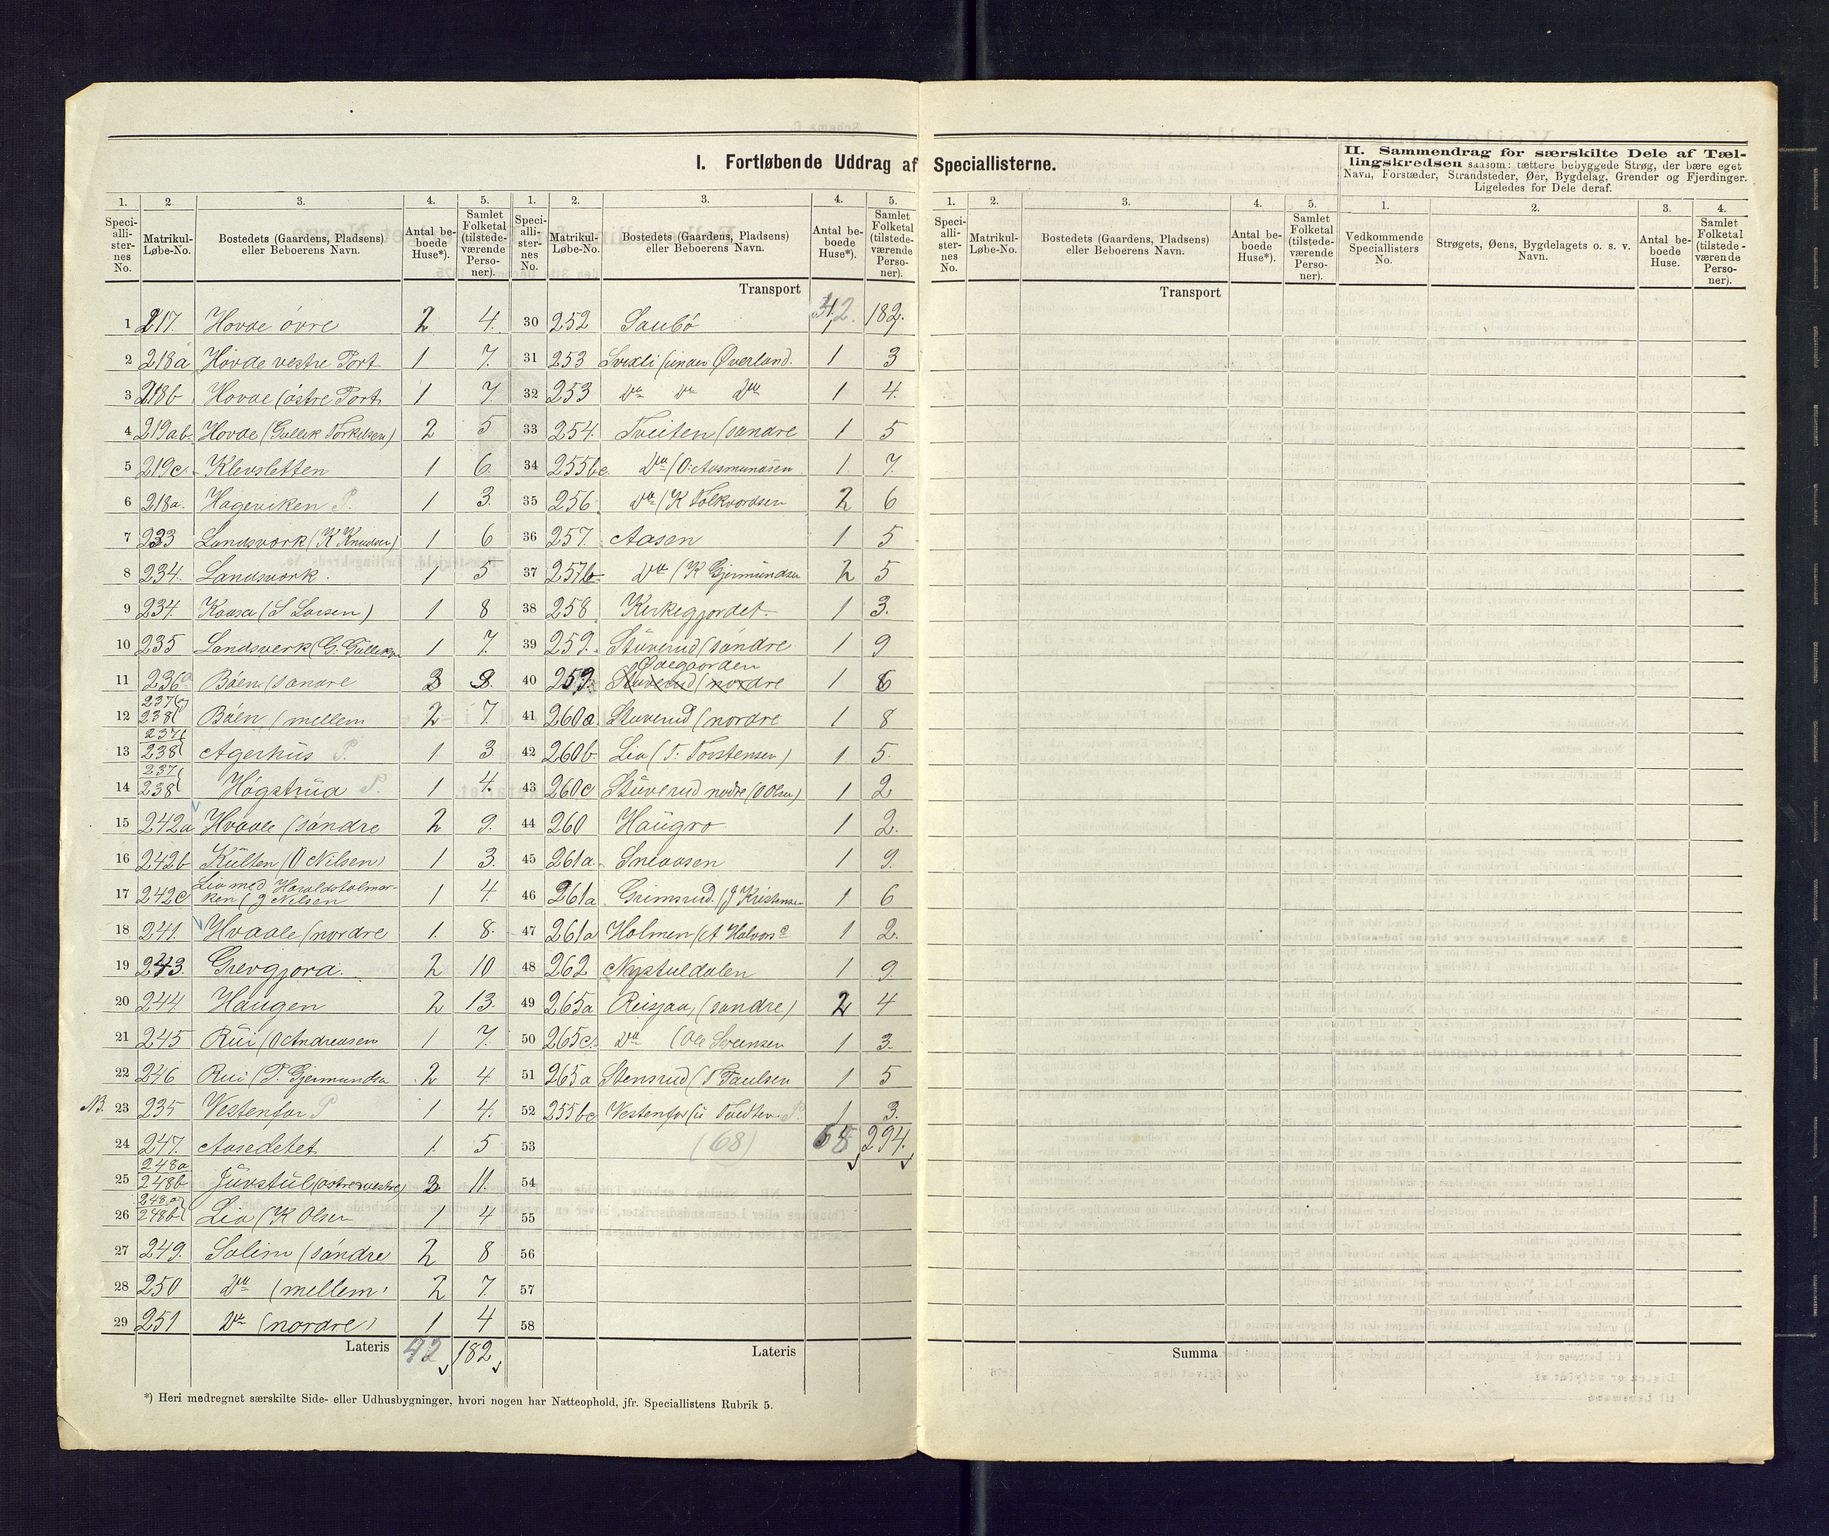 I. Fortløbende Uddrag af Speciallisterne.
II. Sammendrag for særskilte Dele af Tæl-
lingskredsen saasom: tættere bebyggede Strøg, der bære eget
Navn, Forstæder, Strandsteder, Øer, Bygdelag, Grender og Fjerdinger.
Ligeledes for Dele deraf.
1. 2. 3. 4. 5. 1. 2. 3. 4. 5.
Speciallisternes No. Matrikul-Løbe-No. Bostedets (Gaardens, Pladsens) eller Beboerens Navn. Antal beboede Huse*). Samlet Folketal (tilstedeværende Personer).
Speciallisternes No. Matrikul-Løbe-No. Bostedets (Gaardens, Pladsens) eller Beboerens Navn. Antal beboede Huse*). Samlet Folketal (tilstedeværende Personer).
1 217. Hovde övre 2 4.
2 218a Hovde vestre Port 1 7.
3 218b Hovde (östre Port 1 7
4 219ab Hovde (Gullik Torkilsen) 2 5
5 219c. Klevsletten 1 6
6 218a. Hageviken P. 1 3.
7 233 Landsverk (K Knudsen) 1 6
8 234. Landsverk. 1 5
9 234. Kaasa (S Larsen) 1 8
10 235 Landsverk (G. Gulleksen 1 7.
11 236a Böen (söndre 3 8.
12 237 238 Böen (mellem 2 7.
13 237 238 Agerhus P. 1 3
14 237 238 Högstrud P. 1 4.
15 242a Hvaale (söndre 2 9.
16 242b Kulten (O Nilsen) 1 3.
17 242c Lia med Haraldsholmarken (J Nilsen 1 4.
18 241. Hvaale (nordre 1. 8.
19 243. Grevgjord. 2 10
20 244 Haugen 2 13.
21 245 Rui (O Andreasen 1 7.
22 246 Rui (T. Gjermundsen 2 4
NB. 23 235 Vestenfor P 1 4.
24 247. Aasedetet 1. 5
25 248a 248b Juvstul (östre vestre) 2 11.
26 248a 248b Lia (K Olsen 1 4
27 249. Solim (söndre 2 8
28 250 Do (mellem 2 7
29 251 Do (nordre) 1 4
Lateris 42 182
Transport 42 182.
30 252 Saubö
31 253 Svixli (under Överland. 1 3
32 253 Do Do Do 1 4.
33 254. Tveiten (söndre 1 5
34 255bc Do (O: Aasmundsen 1 7.
35 256. Do (K Folkvordsen 2 6
36 257. Aasen 1 5
37 257b Do (K Gjermundsen 2 5
38 258 Kirkegjordet 1 3.
39 259. Stuverud (söndre 1 9
40 259. Stuverud (nordre Ödegaarden 1 6
41 260a. Stuverud (nordre 1 8
42 260b. Lia (T. Torstensen) 1 5.
43 260c Stuverud nordre (O Olsen) 1 2
44 260 Haugro 1 2.
45 261a. Sneaasen 1 9.
46 261a Grimsrud (J Kristensen 1 6
47 261a Holmen (A Halvors 1 2.
48 262 Nystuldalen 1 9.
49 265a Reisjaa (söndre) 2 4
50 265c. Do (Ole Svensen 1 3.
51 265a Stensrud (T Paulsen 1 5
52 255bc Vestenfor (u Tvedten P. 1 3.
53 (68) 68 294.
54
55
56
57
58
Lateris
*) Heri medregnet særskilte Side- eller Udhusbygninger, hvori nogen har Natteophold, jfr. Speciallistens Rubrik 5.
1. 2. 3. 4. 5. 1. 2. 3. 4.
Speciallisternes No. Matrikul-Løbe-No. Bostedets (Gaardens, Pladsens) eller Beboerens Navn. Antal beboede Huse*). Samlet Folketal (tilstedeværende Personer).
Vedkommende Speciallisters No. Strøgets, Øens, Bygdelagets o. s. v. Navn. Antal beboede Huse. Samlet Folketal (tilstedeværende Personer).
Transport
Summa